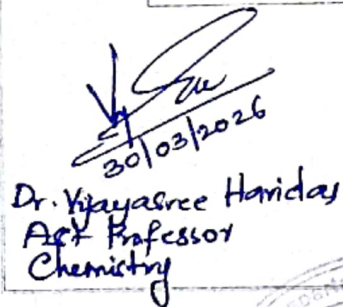 30/03/2026
Dr. Vijayasree Haridas
Asst Professor
Chemistry